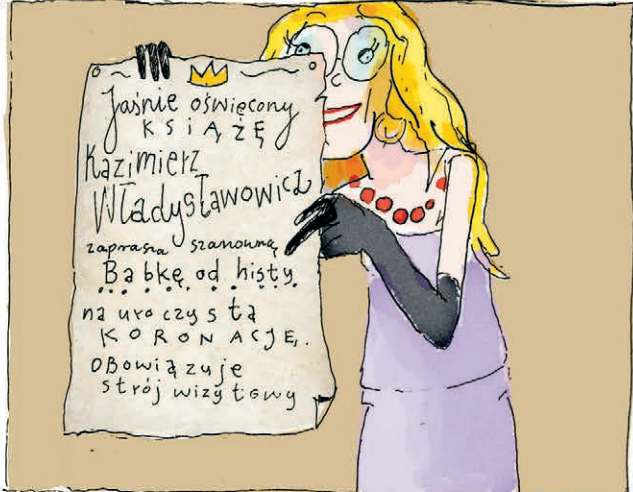 Jaśnie oświęcony
KSIĄŻĘ
Kazimierz
Władysławowicz
zaprasza szanowną
Babkę od histy
na uroczystą
KORONACJĘ.
OBowiązuje
strój wizytowy